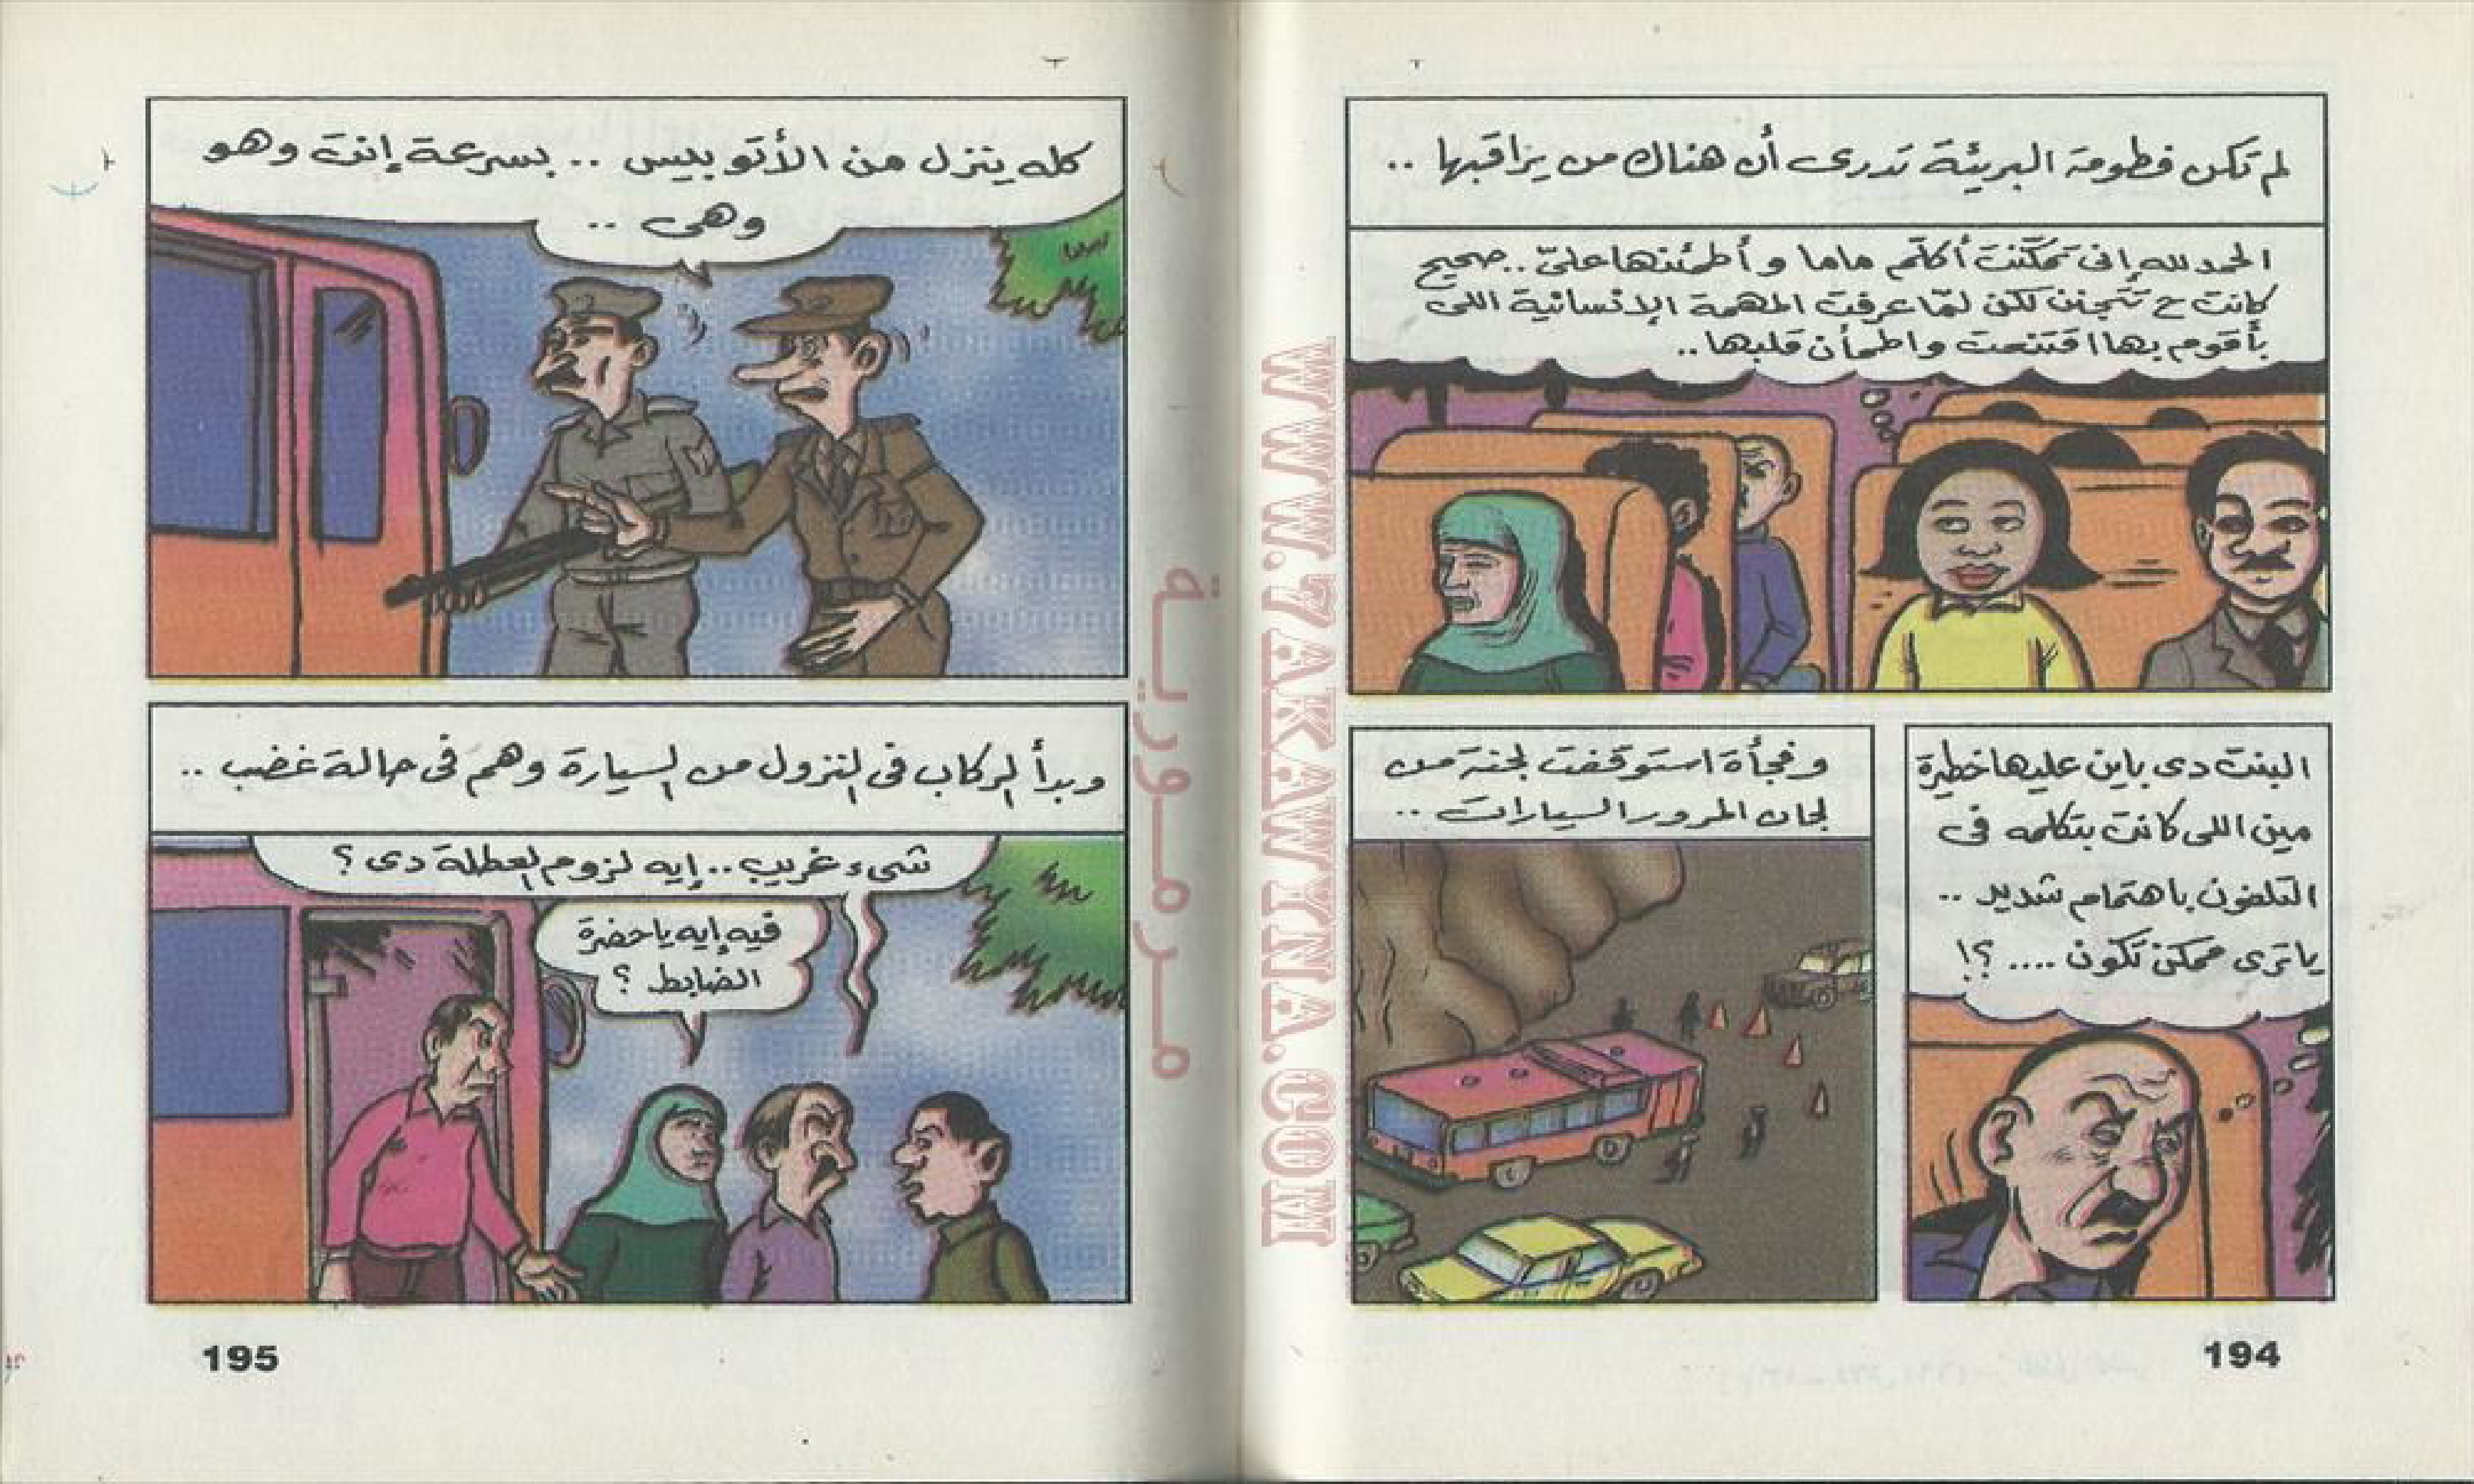 لم تكن فطومة البريئة تدرى أن هناك من يراقبها ..
الحمد لله إنى تمكنت أكلّم ماما و أطمئنها علىّ .. صحيح
كانت ح تتجنن لكن لمّا عرفت المهمة الإنسانية اللى
بأقوم بها اقتنعت واطمأن قلبها ..
البنت دى باين عليها خطيرة
مين اللى كانت بتكلمه فى
التلفون باهتمام شديد ..
ياترى ممكن تكون .... ؟!
وفجأة استوقفت لجنة من
لجان المرور السيارات ..
194
WWW.7AKAWYNA.COM
مرمورية
كله ينزل من الأتوبيس .. بسرعة إنت وهو
وهى ..
وبدأ الركاب فى النزول من السيارة وهم فى حالة غضب ..
شىء غريب .. إيه لزوم العطلة دى ؟
فيه إيه ياحضرة
الضابط ؟
195